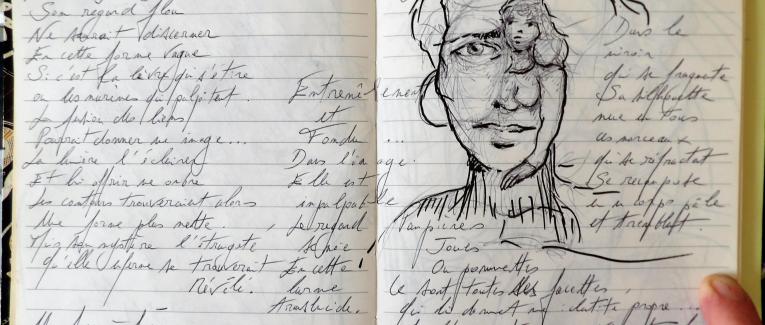 Son regard flou
Ne saurait discerner
En cette forme vague
Si c'est la lèvre qui s'étire
ou les narines qui palpitent.
La fusion des liens
Pourrait donner une image...
La lumière l'éclairerait
Et lui offrir une ombre
Les contours trouveraient alors
Une forme plus nette.
mystère l'étrangeté
qu'elle informe se trouverait
Révélé.
Entremêlement
et
Fondu...
Dans l'image.
Elle est
impalpable
Le regard
En cette
larme
Paupières,
Joues
Ou pommettes
Ce sont toutes les facettes,
qui lui donnent propre...
Dans le
miroir
qui se fragmente
Sa silhouette
nue en tous
ces morceaux
qui se réfractent
Se recompose
en un corps pâle
et tremblant.